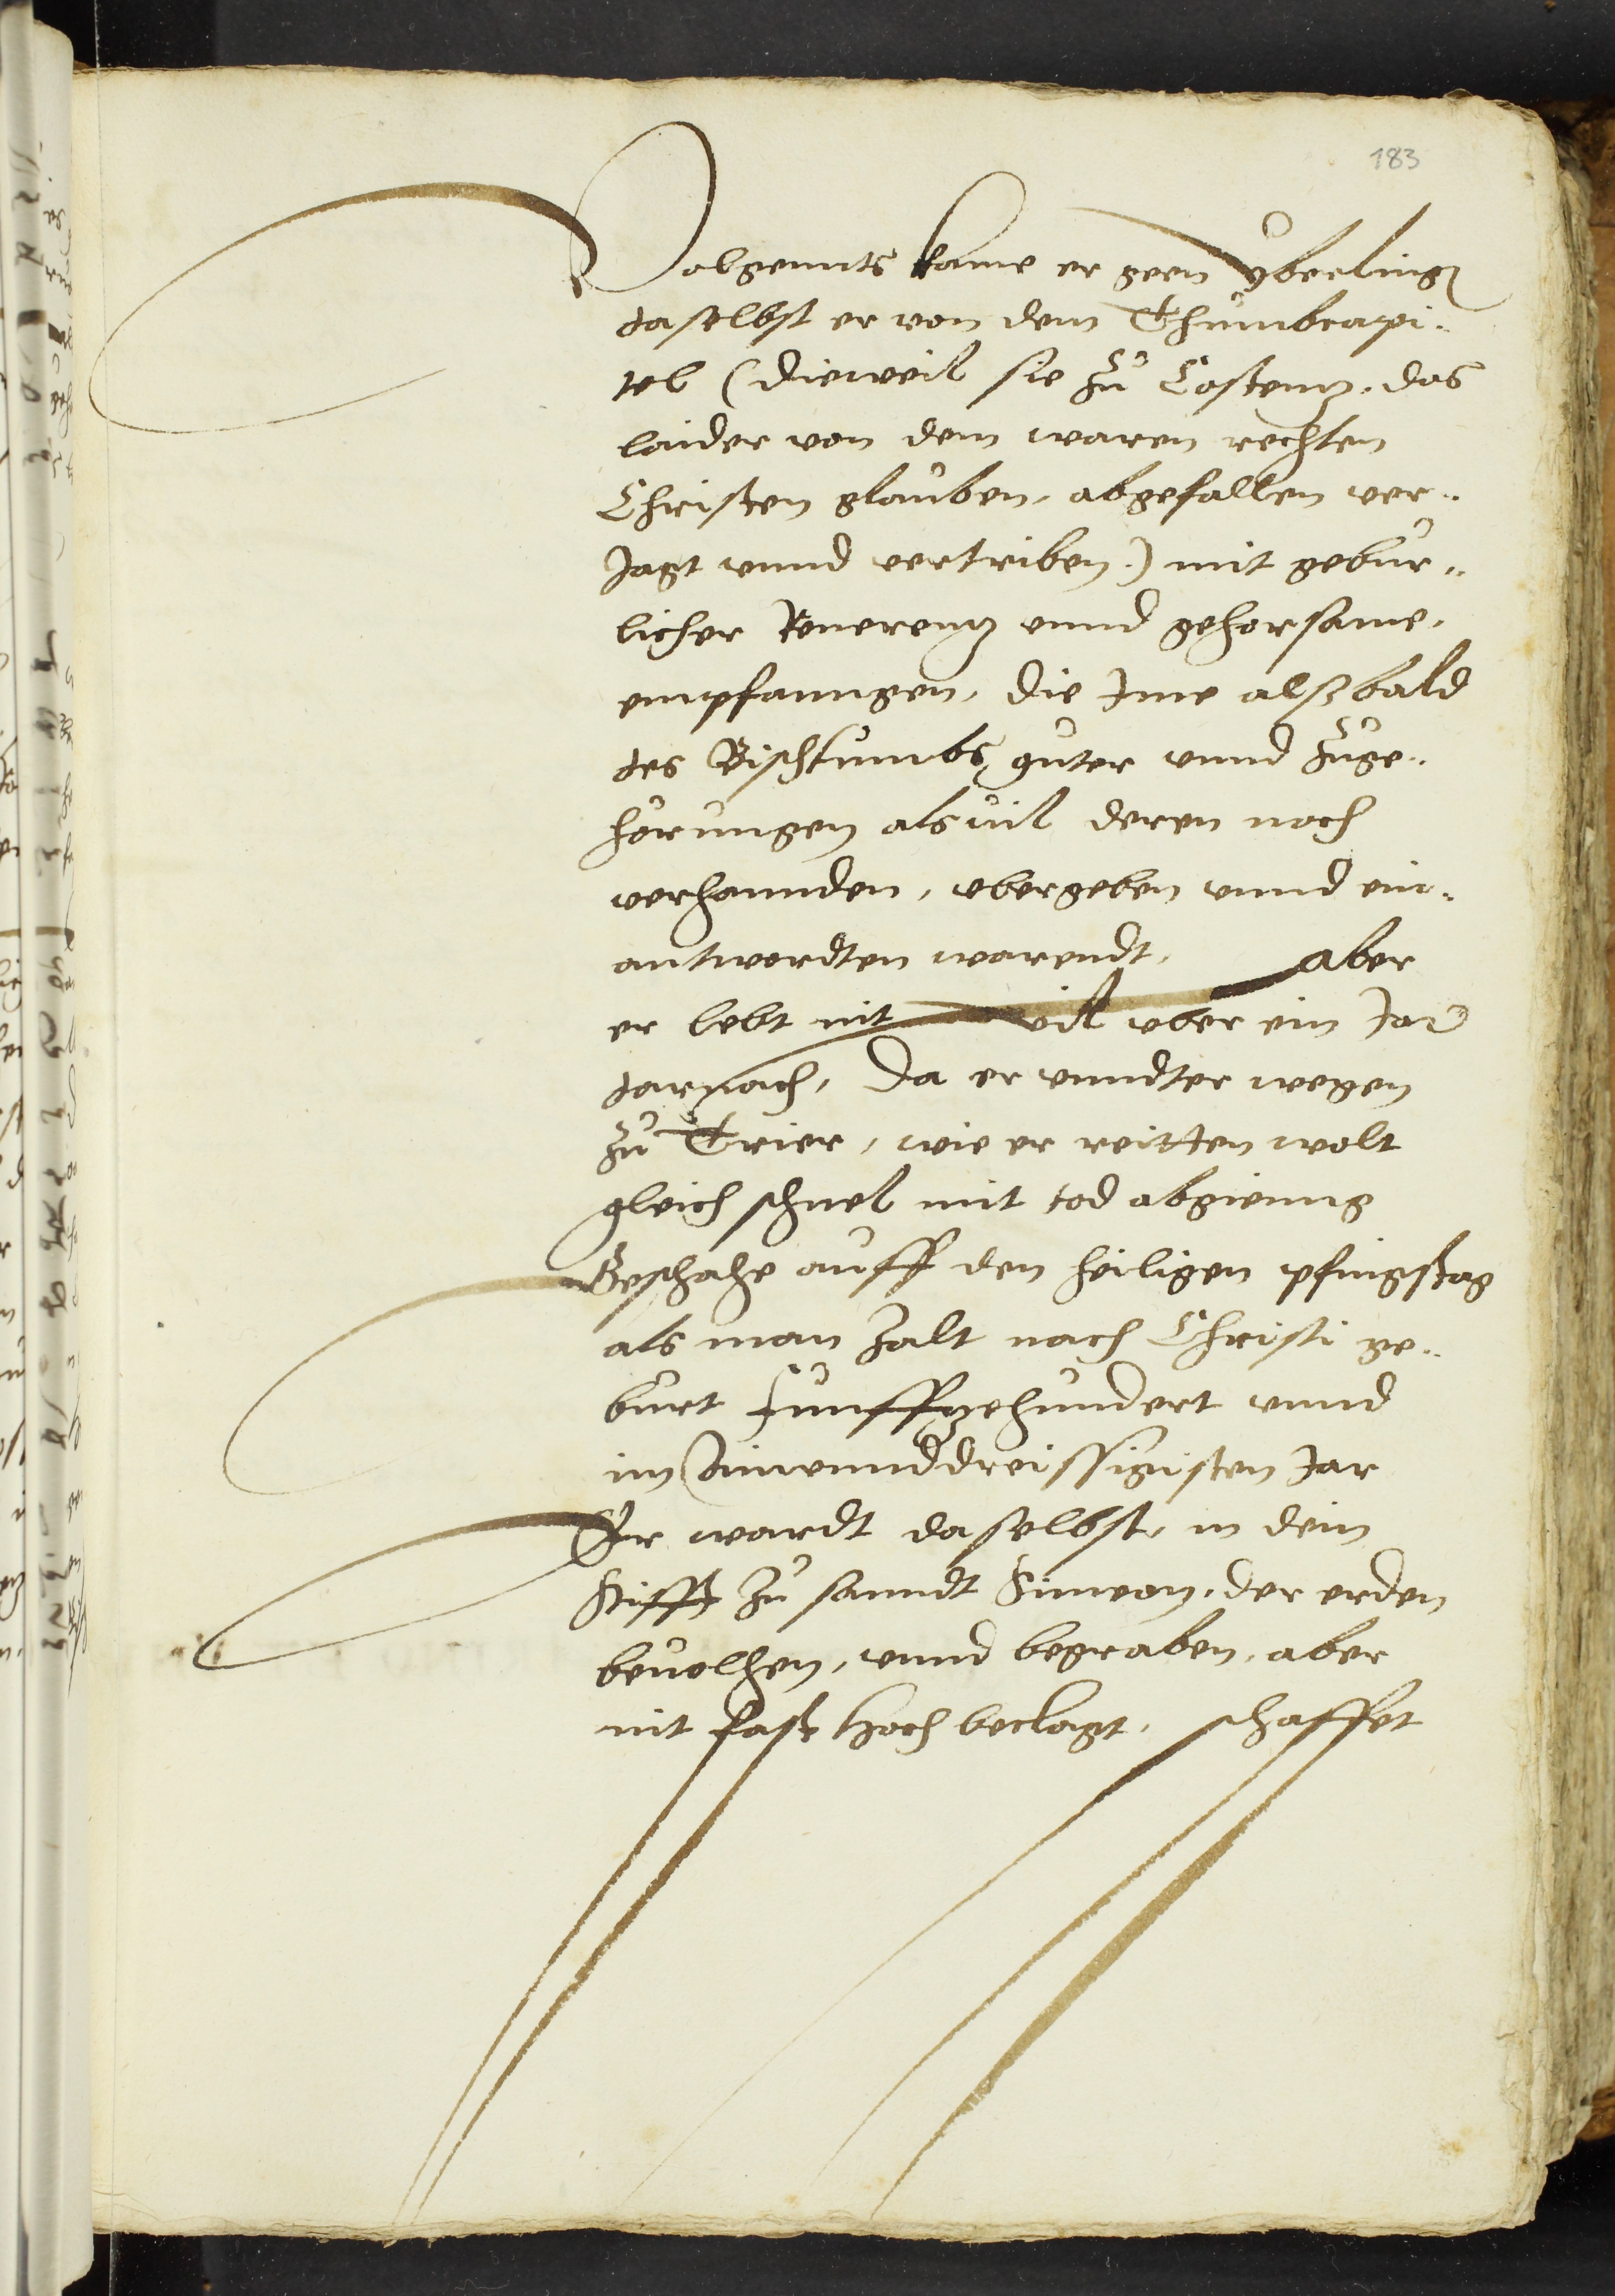 183
Volgennts kame er geen Yberling
daselbst er von dem Thumbcapi-
tel (dieweil sie zu Costentz, das
laider von dem waren rechten
Christen glauben, abgefallen ver-
Jagt unnd vertriben) mit gebür-
licher Reuerentz unnd gehorsame,
empfanngen, die Jme alßbald
des Bischtumbs, guter unnd zuge-
hörungen als vil deren noch
verhannden, vbergeben unnd ein-
antwordten warendt, aber
er lebt nit vil vber ein Jar
darnach, da er vnndter wegen
zu Trier, wie er reitten wolt
gleich schnel mit tod abgienng
Beschahe auff den heiligen pfingstag
als man zalt nach Christi ge-
burt funffzehundert unnd
im Ainvnnddreissigisten Jar
Er wardt daselbst, in dem
Stifft zu sanndt Simeon, der erden
beuolhen, vnnd begraben, aber
nit fast hoch beclagt, schaffet